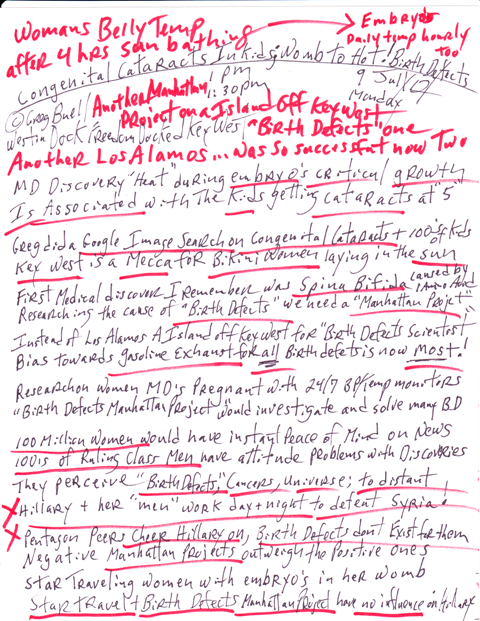 Womans Belly Temp
after 4 hrs sun bathing
Embryo's
Daily temp hourly
too
Congenital Cataracts In Kids; Womb to Hot! Birth Defects
1 pm
9 July 07
© Greg Buell
Another Manhattan
1:30pm
Monday
Project on a Island off Key West
Westin Dock Freedom Docked Key West
"Birth Defects" one
Another Los Alamos... was so successful now Two
MD Discovery "Heat" during embryo's critical growth
Is Associated with The Kids getting cataracts at "5"
Greg did a Google Image Search on Congenital Cataracts + 100's of kids
Key West is a Mecca for Bikini Women laying in the sun
First Medical discover I Remember was Spina Bifida caused by
Researching the cause of "Birth Defects" we need a "Manhattan Projet"
Instead of Los Alamos A Island off Key West for "Birth Defects Scientist"
Bias towards gasoline Exhaust for all Birth defets is now Most!
Research on women MD's Pregnant with 24/7 BP/temp monitors
"Birth Defects Manhattan Project" would investigate and solve many BD
100 Million Women would have instant Peace of Mind on News
100is of Ruling Class Men have attitude problems with Discoveries
They perceive "Birth Defects," Cancers, Universe; to distant
Hillary + her "men" work day + night to defeat Syria!
Pentagon Peers Cheer Hillary on, Birth Defects dont Exist for them
Negative Manhattan Projects outweigh the Positive ones
Star Traveling women with embryo's in her womb
Star travel + Birth Defects Manhattan Project have no influence on Hillary